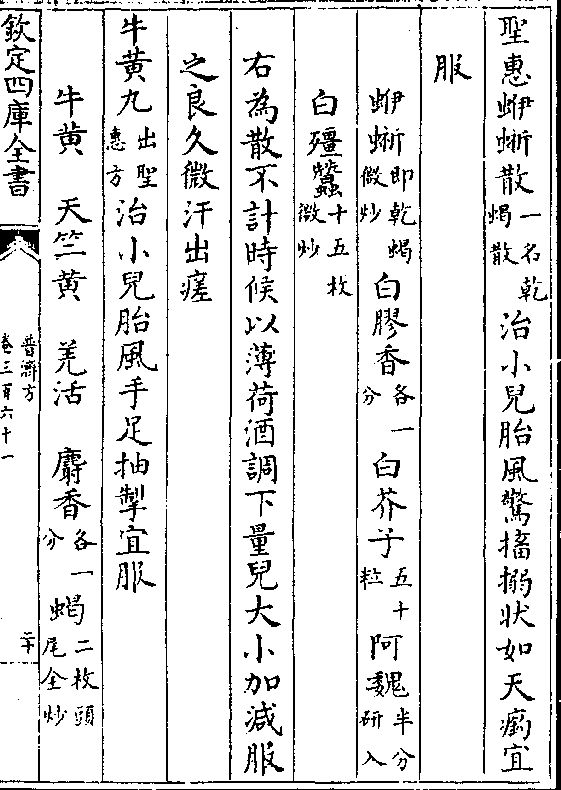 聖惠蚦蜥散一名乾蝎散治小兒胎風驚搐搦狀如天瘹宜
服
蚦蜥即乾蝎微炒白膠香各一分白芥子五十粒阿魏半分研入
白殭蠶十五枚微炒
右為散不計時候以薄荷酒調下量兒大小加減服
之良久微汗出瘥
牛黄丸出聖惠方治小兒胎風手足抽掣宜服
牛黄 天竺黄 羌活 麝香各一分蝎二枚頭尾全炒
欽定四庫全書
普濟方
卷三百六十一
二十